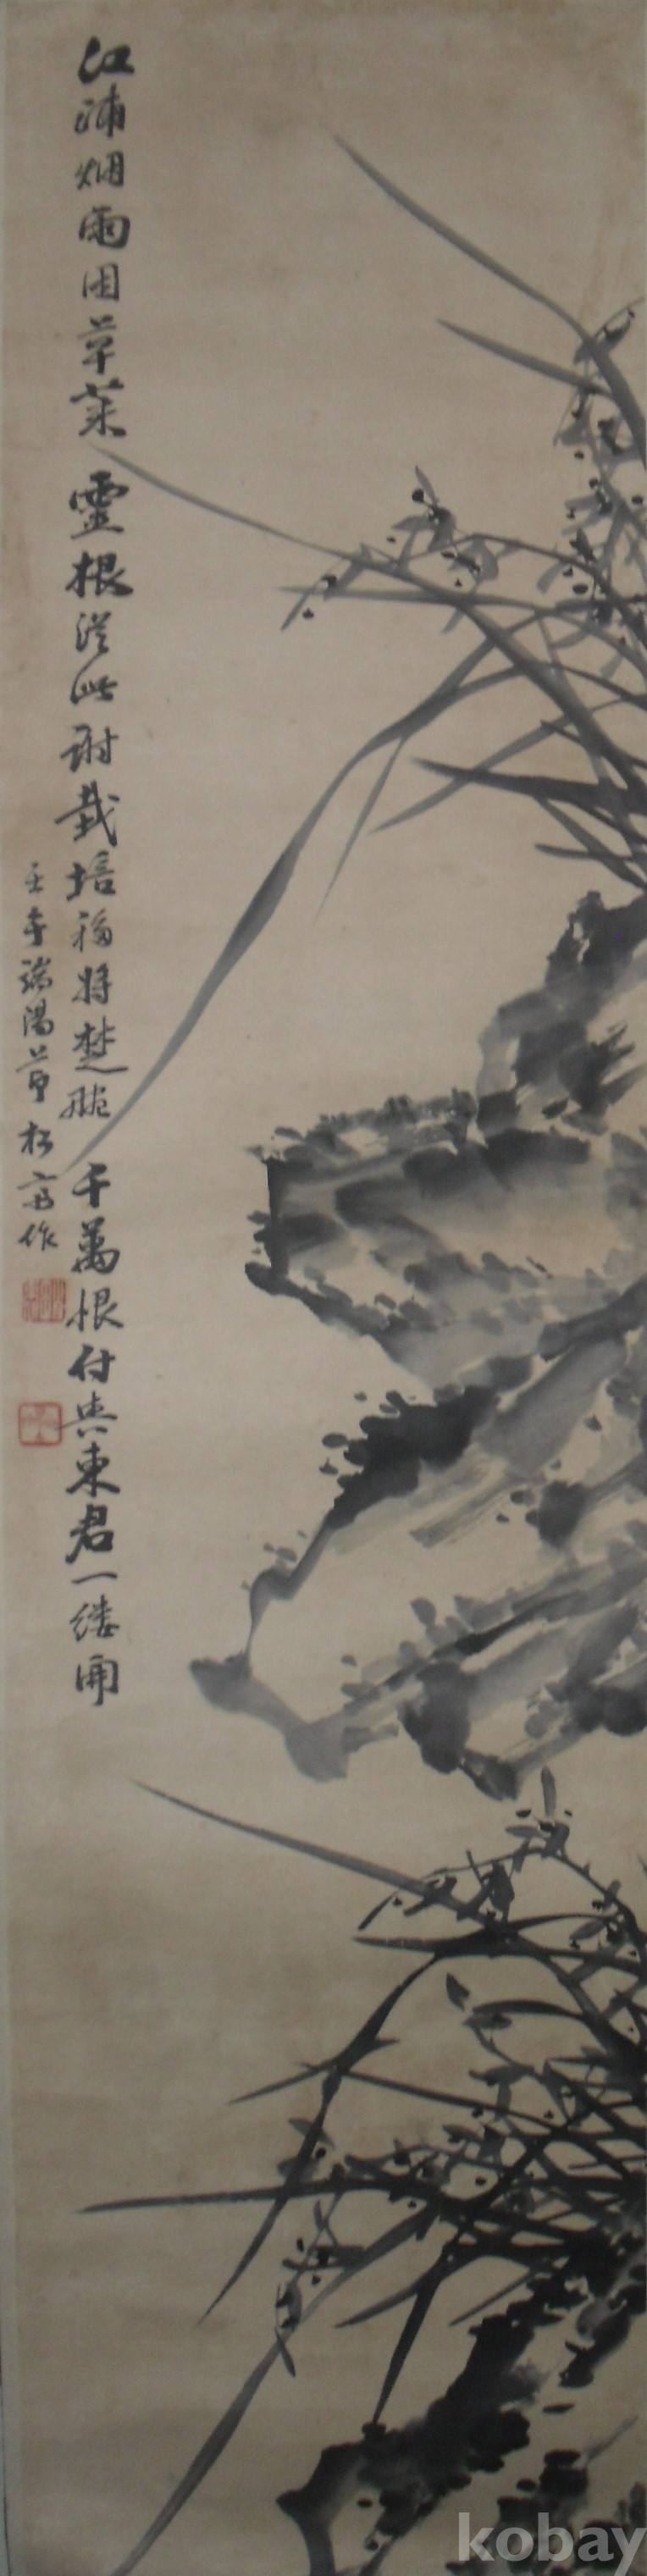 江浦烟雨困草萊 靈根從此謝栽培 獨將楚畹 千萬恨付與東君一縷開
壬寅端陽節 松
作
kobay